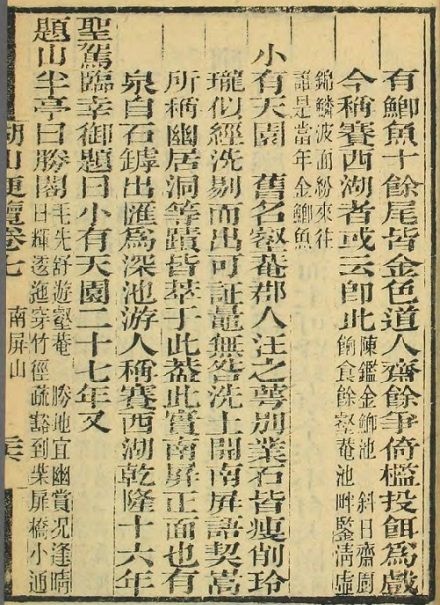 有鯽魚十餘尾皆金色道人齋餘爭倚檻投餌爲戲
今稱賽西湖者或云卽此
陳鑑金鯽池　斜日齋廚
餉食餘壑菴池畔鑒淸虛
錦鱗波面紛來往
謂是當年金鯽魚
小有天園　舊名壑菴郡人汪之萼別業石皆瘦削玲
瓏似經洗剔而出可証鼂無咎洗土開南屏語契嵩
所稱幽居洞等蹟皆萃于此蓋此實南屏正面也有
泉自石罅出匯爲深池游人稱賽西湖乾隆十六年
聖駕臨幸御題曰小有天園二十七年又
題山半亭曰勝閣
毛先舒遊壑菴　勝地宜幽賞况逢晴
日輝逶迤穿竹徑疏豁到柴扉橋小通
湖山便覽卷七
南屏山